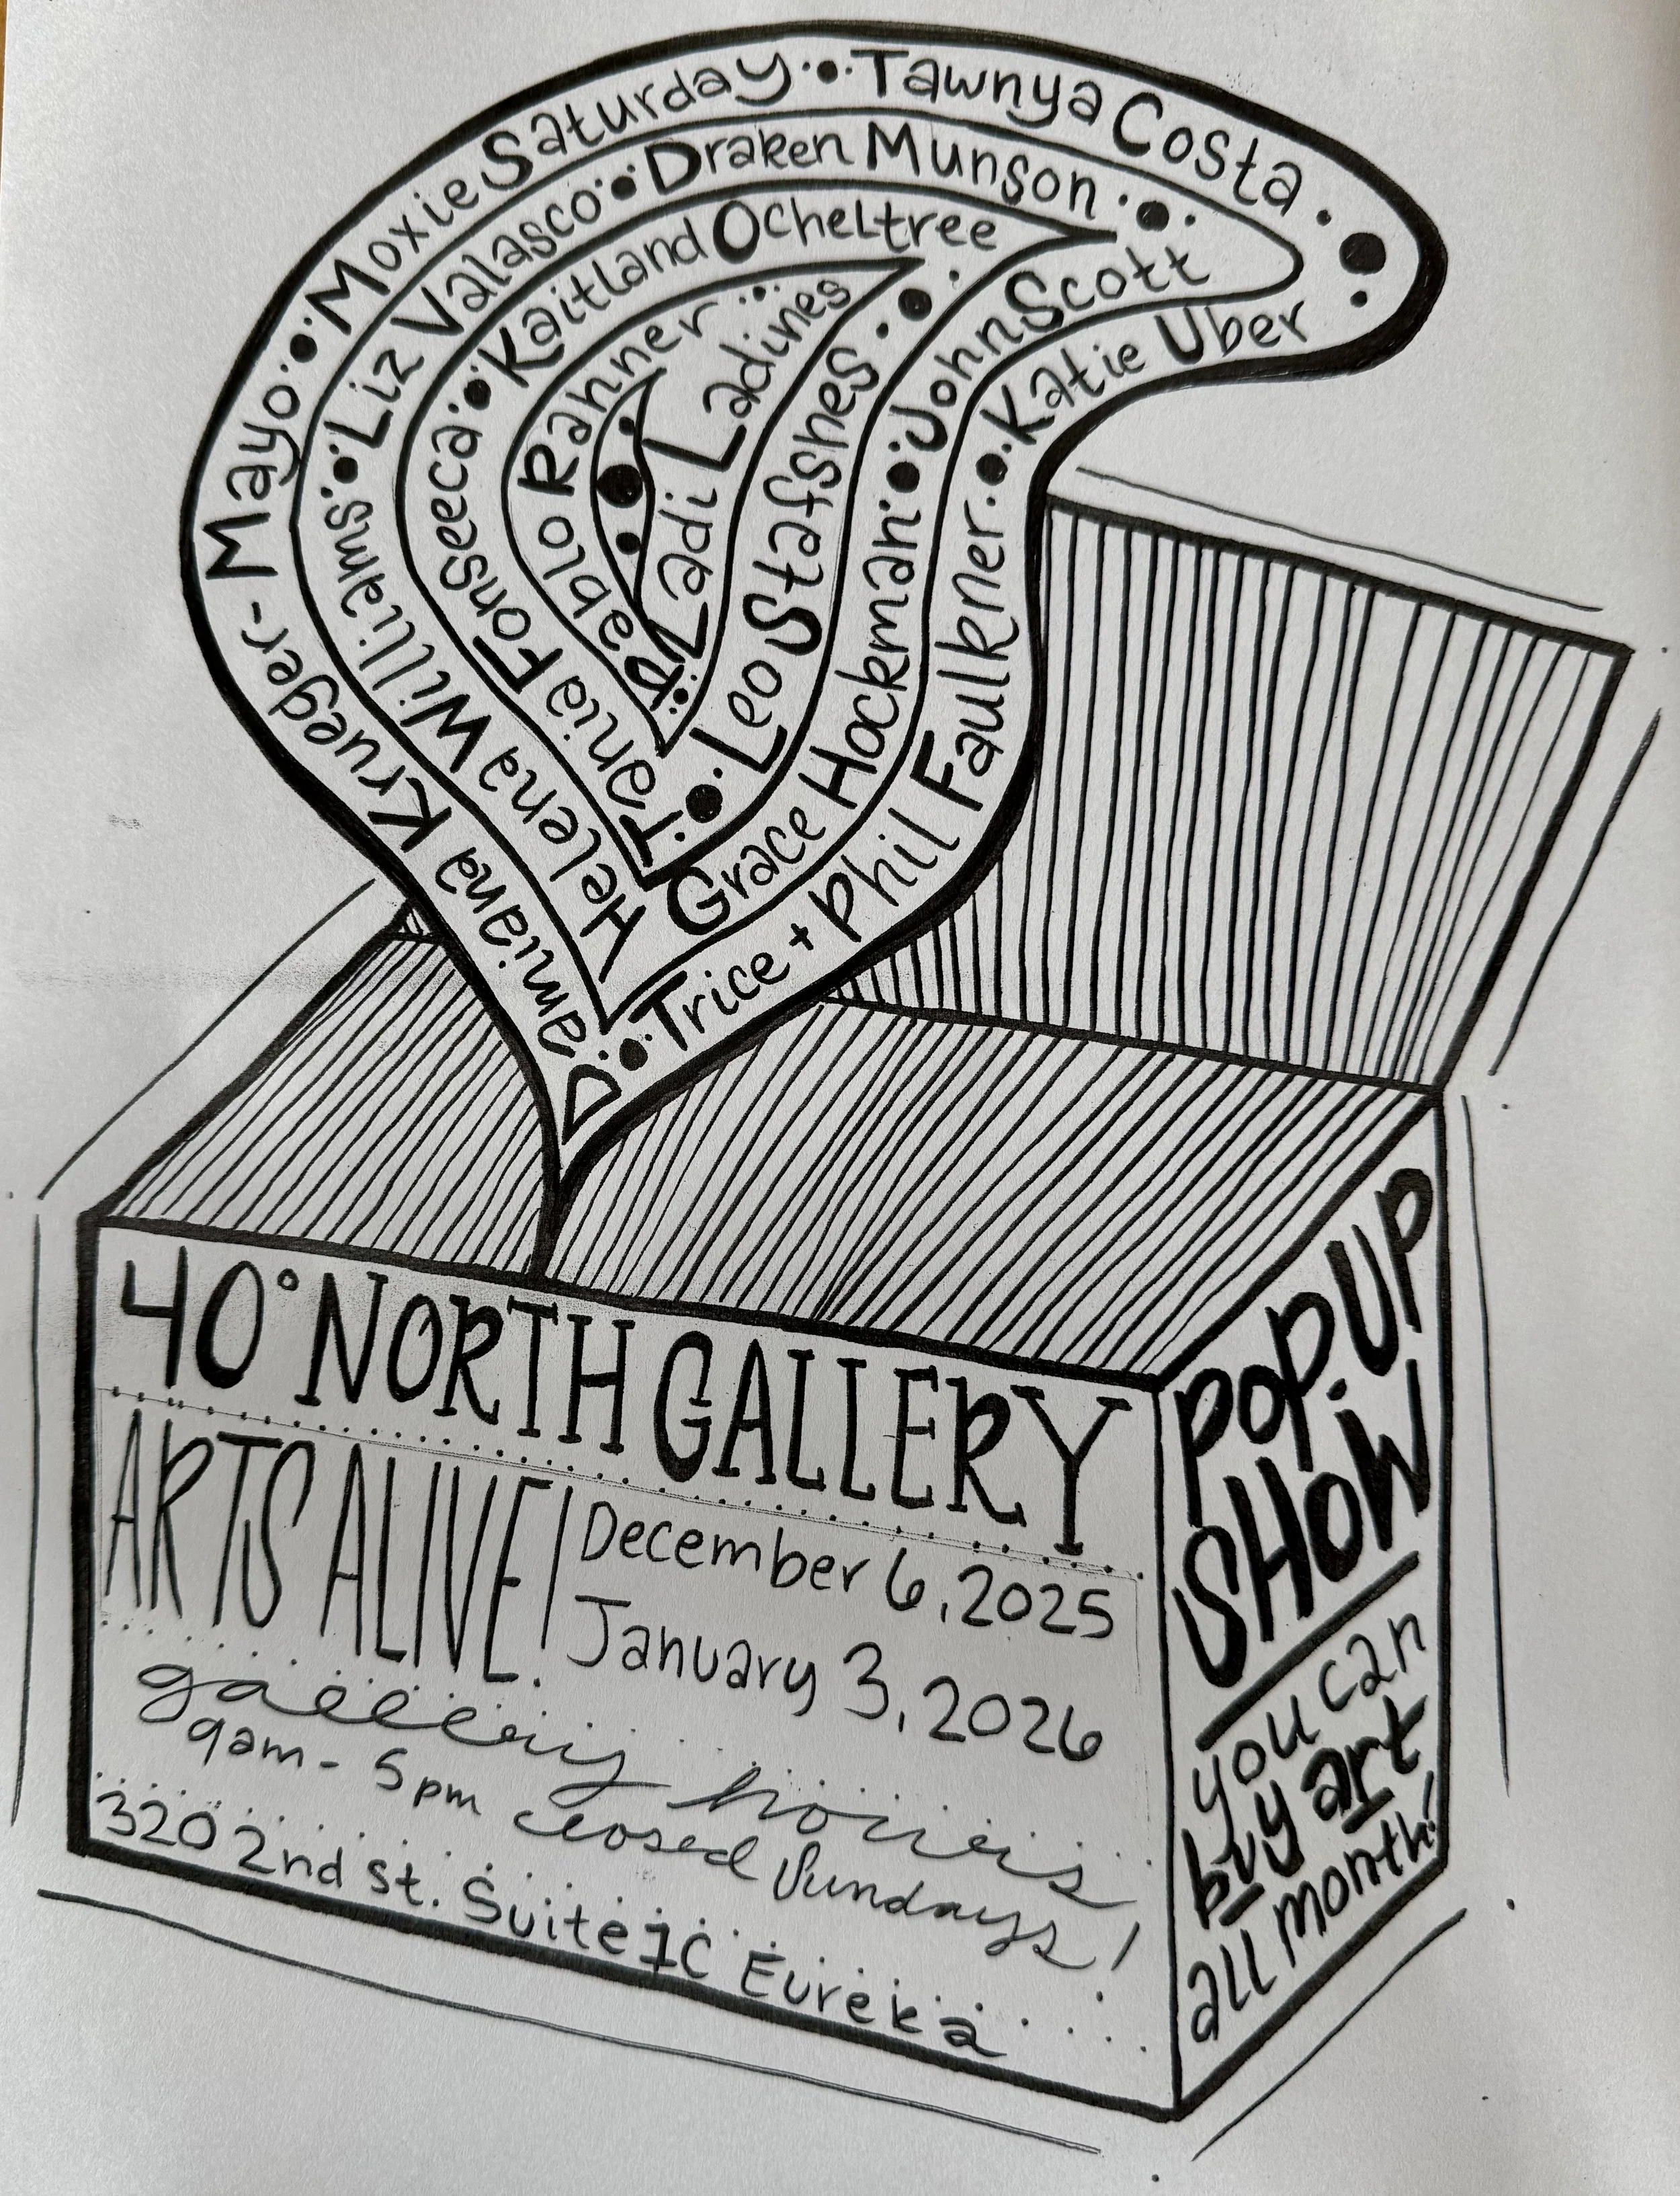 Damiana Krueger-Mayo • Moxie Saturday • Tawnya Costa
Trice + Phil Faulkner • Katie Uber
Helena Williams • Liz Valasco • Draken Munson
Grace Hockman • John Scott
Tania Fonseeca • Kaitland Ocheltree
Leo Stafshes
Pablo Rahner
Ladi Ladines
40° NORTH GALLERY
ARTS ALIVE!
December 6, 2025
January 3, 2026
gallery hours
9am - 5pm closed Sundays!
320 2nd st. Suite 1C Eureka
POP UP
SHOW
you can
buy art
all month!